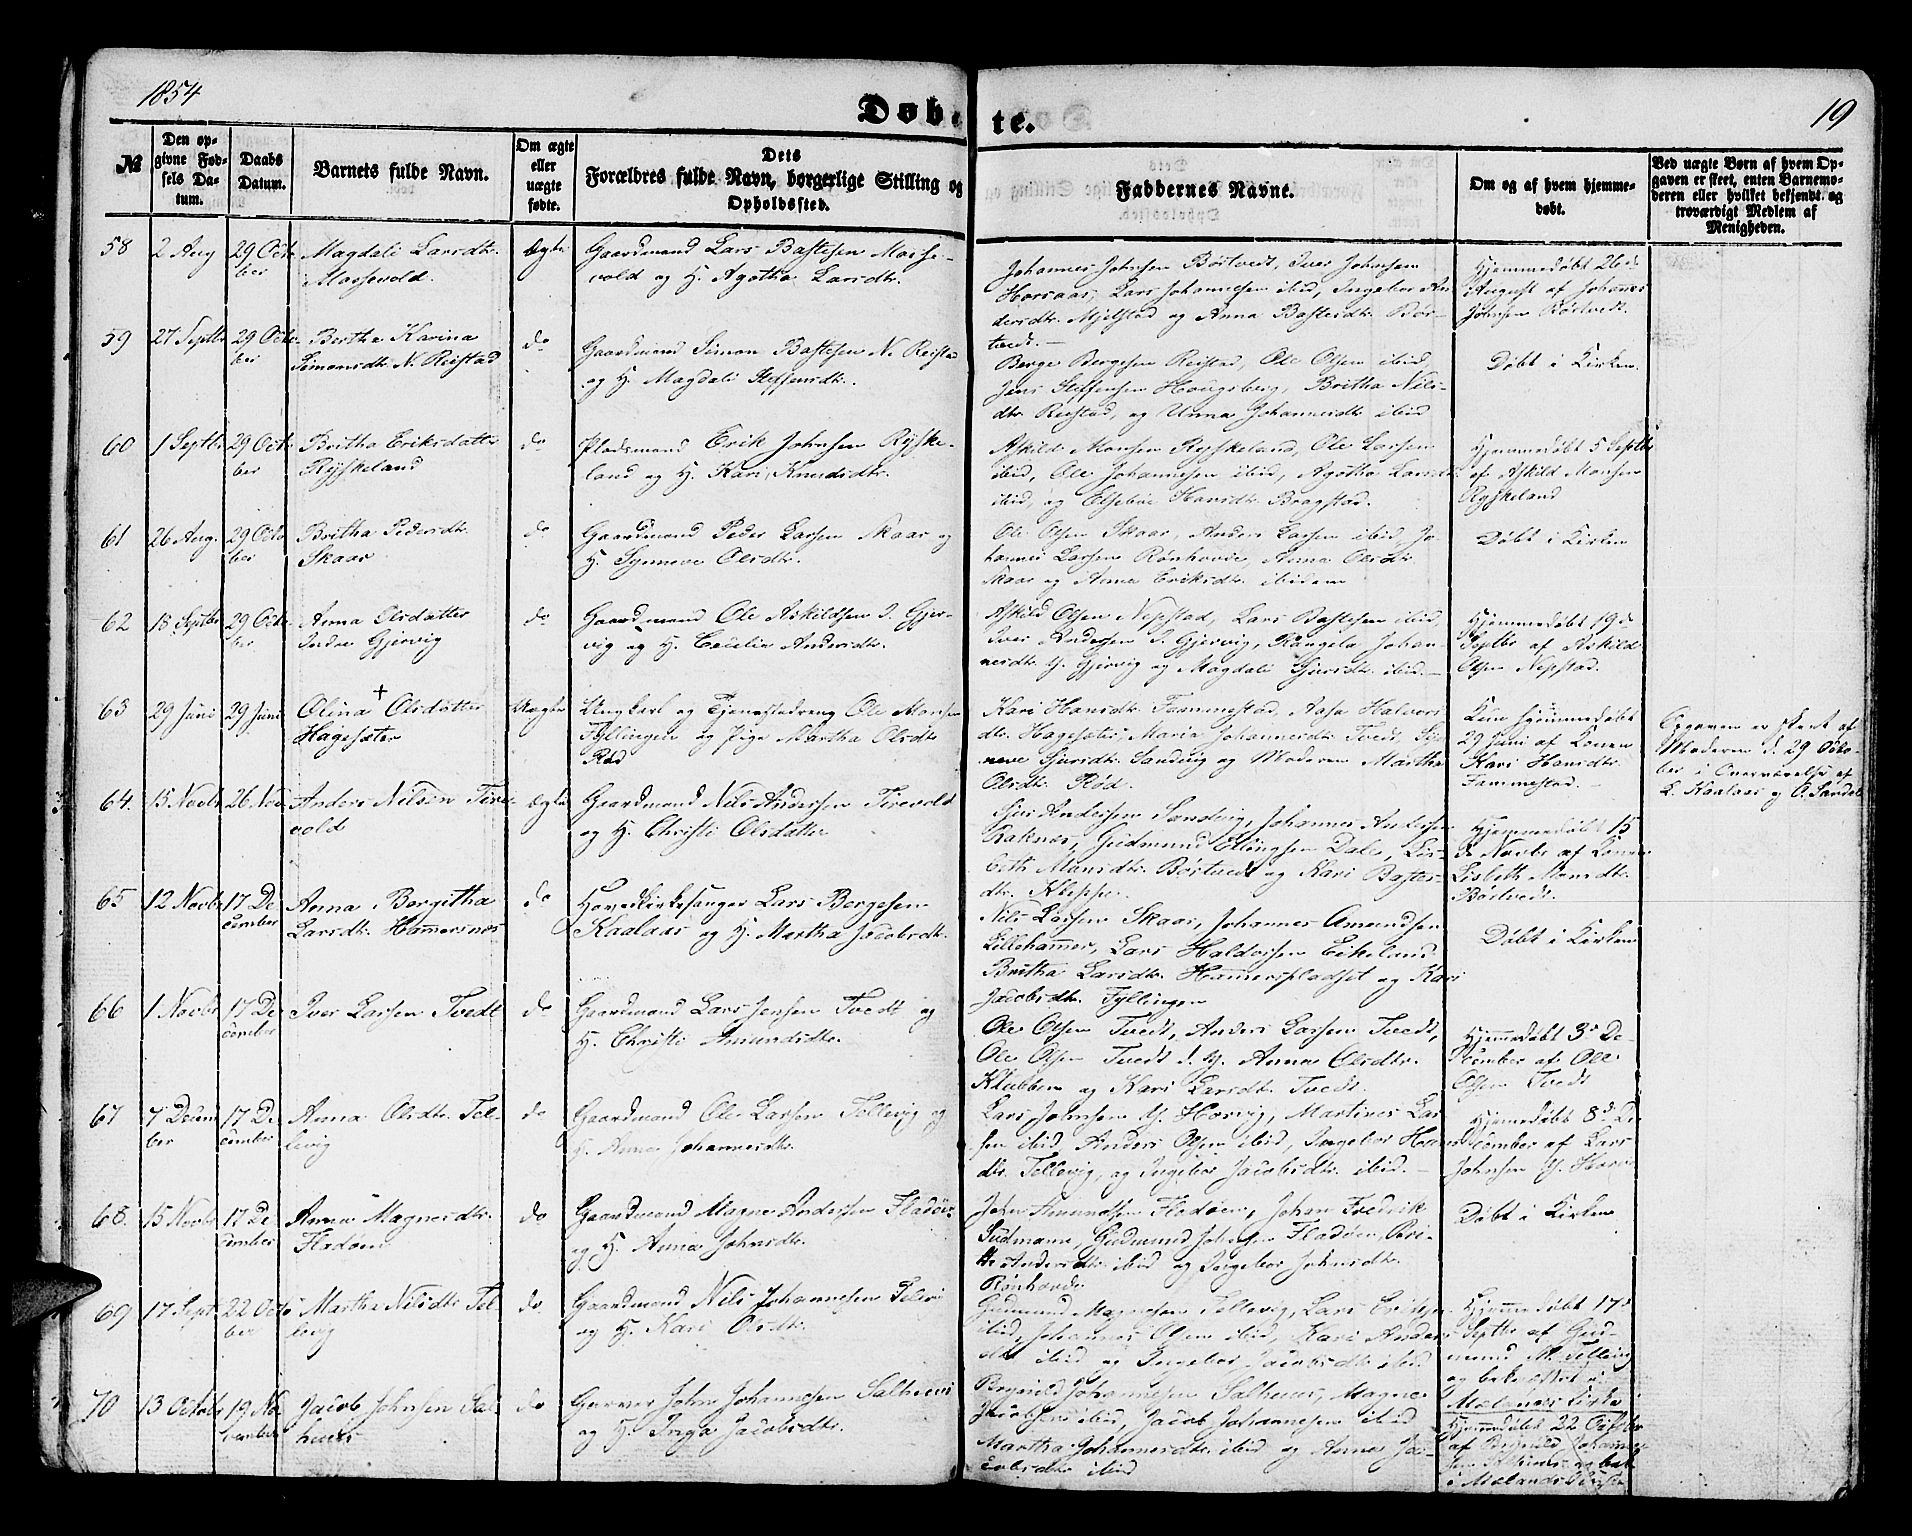 1854
Døbte.
19
№
Den opgivne Fødsels Datum.
Daabs Datum.
Barnets fulde Navn.
Om ægte eller uægte fødte.
Dets Forældres fulde Navn, borgerlige Stilling og Opholdssted.
Faddernes Navne.
Om og af hvem hjemmedøbt.
Ved uægte Børn af hvem Opgaven er skeet, enten Barnemoderen eller hvilket bekjendt og troværdigt Medlem af Menigheden.
58
2 Aug
29 October
Magdali Larsdtr.
Massevold.
Ægte
Gaardmand Lars Bastesen Masse-
vold og H. Agatha Larsdtr.
Johannes Johnsen Børtvedt, Iver Johnsen
Horsaas, Lars Johannesen ibid, Ingebor An-
dersdtr. Mjelstad og Anna Bastesdtr. Bør-
tvedt.
Hjemmedøbt 26 d.
August af Johannes
Johnsen Børtvedt.
59
27 Septbr
29 October
Bertha Karina
Simonsdtr. N. Reistad
do
Gaardmand Simon Bastesen N. Reistad
og H. Magdali Steffensdtr.
Berge Bergesen Reistad, Ole Olsen ibid
Jens Steffensen Hougsberg, Britha Nils-
dtr. Reistad, og Unna Johannesdtr ibid
Døbt i Kirken
60
1 Septbr
29 October
Britha Eriksdatter
Ryskeland
do
Pladsmand Erik Johnsen Ryske-
land og H. Kari Knudsdtr.
Askild Monsen Ryskeland, Ole Larsen
ibid, Ole Johannesen ibid, Agatha Larsdtr
ibid, og Elsebøe Hansdtr. Bragstad.
Hjemmedøbt 5 Septbr
af Askild Monsen
Ryskeland
61
26 Aug.
29 October
Britha Pedersdtr.
Skaar
do
Gaardmand Peder Larsen Skaar og
H. Synneve Olsdtr.
Ole Olsen Skaar, Anders Larsen ibid, Jo-
hannes Larsen Rønhovde, Anna Olsdtr.
Skaar og Anna Eriksdtr. ibidem
Døbt i Kirken
62
18 Septbr
29 October
Anna Olsdatter
Indre Gjervig
do
Gaardmand Ole Askildsen I. Gjer-
vig og H. Cecilia Andersdtr.
Askild Olsen Nepstad, Lars Bastesen ibid,
Iver Andersen I. Gjervig, Rangela Johan-
nesdtr. Y. Gjervig og Magdali Sjursdtr. ibid.
Hjemmedøbt 19 d.
Septbr af Askild
Olsen Nepstad.
63
29 Juni
29 Juni
Olina + Olsdatter
Hagesæter
Uægte
Ungkarl og Tjenestedreng Ole Monsen
Fyllingen og Pige Martha Olsdtr
Rød
Kari Hansdtr. Fammestad, Aasa Halvors
dtr. Hagesæter, Maria Johannesdtr. Tvedt, Syn-
neve Sjursdtr. Sandvig og Moderen Martha
Olsdtr. Rød.
Kun hjemmedøbt
29 Juni af Konen
Kari Hansdtr.
Fammestad.
Opgaven er skeet af
Moderen d. 29 Octo-
ber i Overværelse af
L. Kaalaas og O. Sandal
64.
15 Novbr
26 Nov.
Anders Nilsen Tire-
vold
Ægte
Gaardmand Nils Andersen Tirevold
og H. Christi Olsdatter
Sjur Andersen Sandvig, Johannes Andersen
Raknes, Gudmund Ellingsen Dale, Lis-
beth Monsdtr. Børtvedt og Kari Bastes-
dtr. Kleppe.
Hjemmedøbt 15
de Novbr af Konen
Lisbeth Monsdtr.
Børtvedt.
65
12 Novbr
17 December
Anna Bergitha
Larsdtr. Hammersnes
do
Hovedkirkesanger Lars Bergesen
Kaalaas og H. Martha Jacobsdtr.
Nils Larsen Skaar, Johannes Amundsen
Lillehammer, Lars Haldorsen Eikeland
Britha Larsdtr. Hammerspladset og Kari
Jacobsdtr. Fyllingen
Døbt i Kirken
66
1 Novbr
17 December
Iver Larsen Tvedt
do
Gaardmand Lars Jensen Tvedt og
H. Christi Amundsdtr.
Ole Olsen Tvedt, Anders Larsen Tvedt,
Ole Olsen Tvedt d. y. Anna Olsdtr.
Klubben og Kari Larsdtr. Tvedt
Hjemmedøbt 3d De-
cember af Ole
Olsen Tvedt
67
7 December
17 December
Anna Olsdtr. Tel-
levig
do
Gaardmand Ole Larsen Tellevig og
H. Anna Johannesdtr.
Lars Johnsen Y. Horvig, Martines Lar-
sen ibid Anders Olsen ibid, Ingebor Hans
dtr. Tellevig, og Ingebor Jacobsdtr. ibid.
Hjemmedøbt 8 d. De-
cember af Lars
Johnsen Y. Horvi
68.
15 Novbr
17 December
Anna Magnesdtr.
Fladøen
do
Gaardmand Magne Andersen Fladøen
og H. Anna Johnsdtr.
John Amundsen Fladøen, Johan Fredrik
Sudmann, Gudmund Johnsen Fladøen, Bri-
the Andersdtr. ibid og Ingebor Johnsdtr.
Rønhovde
Døbt i Kirken
69
17 Sept.
22 October
Martha Nilsdtr. Tel-
levig
do.
Gaardmand Nils Johannesen Televi
og H. Kari Olsdtr.
Gudmund Magnesen Tellevig, Lars Eriksen
ibid, Johannes Olsen ibid, Kari Anders
dtr ibid og Ingebor Jacobsdtr ibid
Hjemmedøbt 17 d
Septbr af Gud-
mund M. Tellevig
og bekræftet i
Mælands Kirke
70
13 October
19 November
Jacob Johnsen Sal-
huus
do
Garver John Johannesen Salhuus
og H. Inga Jacobsdtr.
Brynild Johannesen Salhuus, Magne
Jacobsen ibid, Jacob Johannesen ibid
Martha Johannesdtr. ibid og Anna Ja-
cobsdtr ibid
Hjemmedøbt 22 October
af Brynild Johannes-
i Mælands Kirke